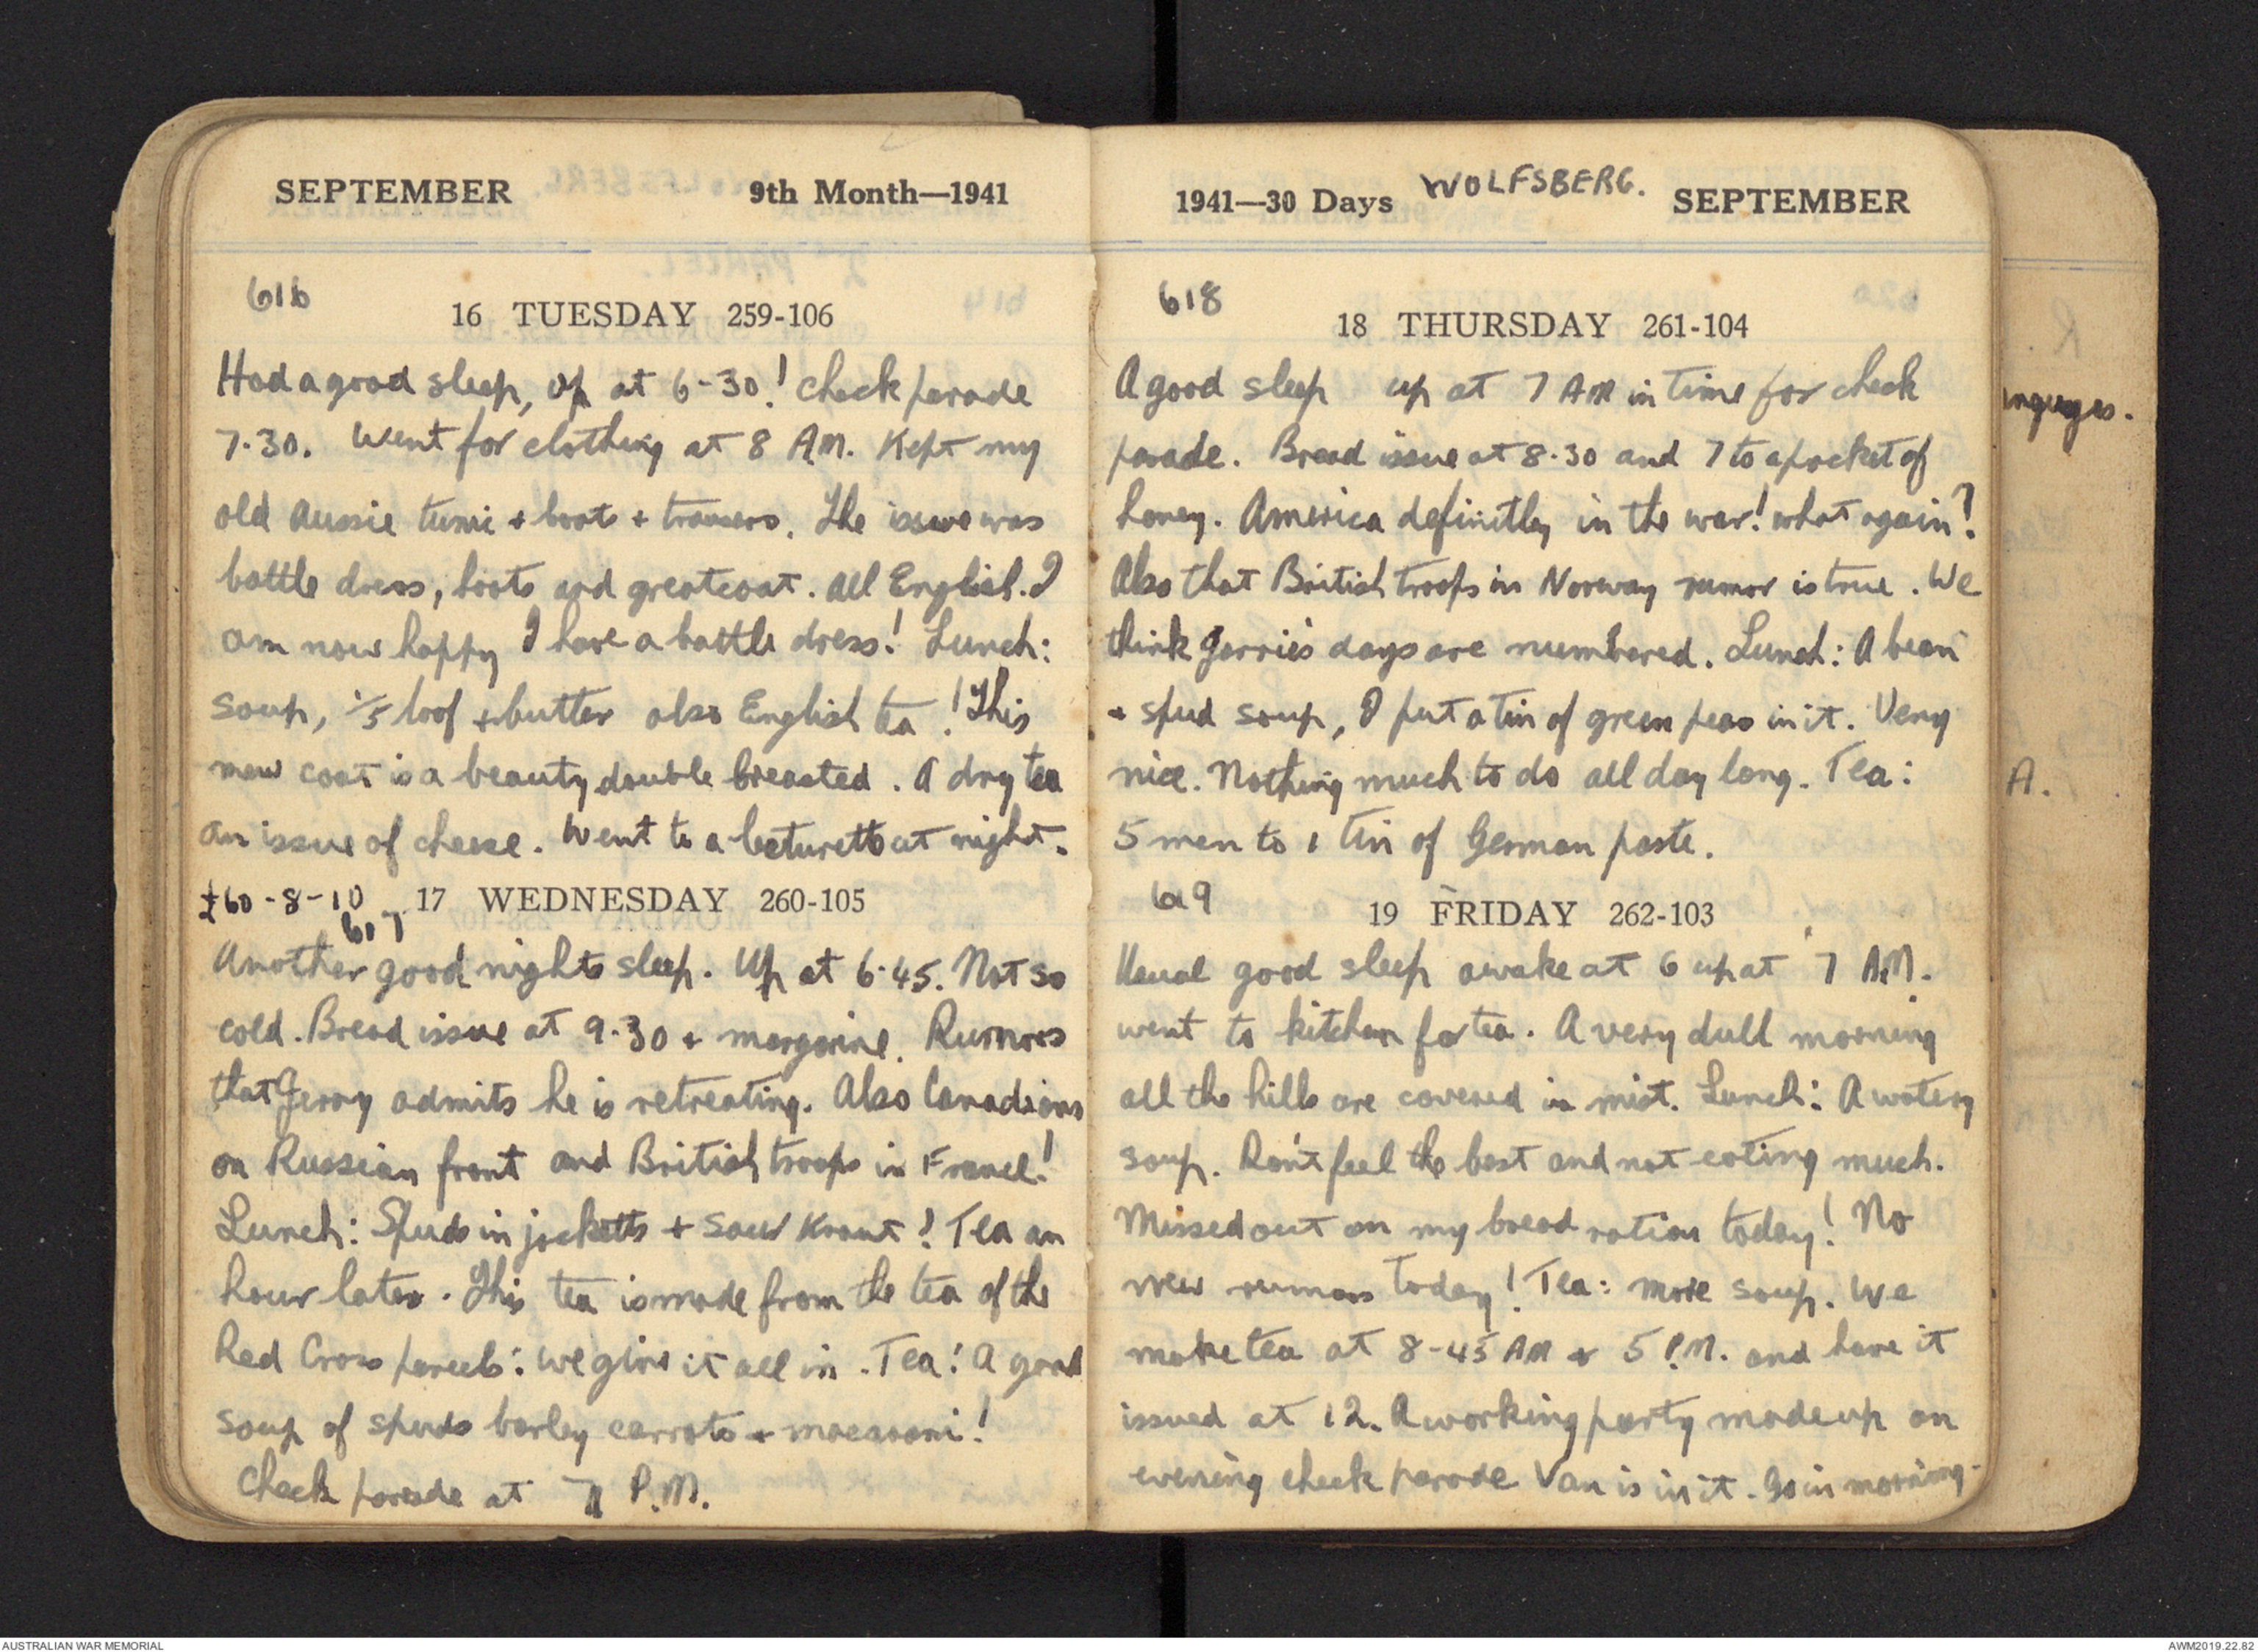 SEPTEMBER 9th Month—1941
616
16 TUESDAY 259-106
Had a good sleep, up at 6-30! Check parade
7.30. Went for clothing at 8 AM. Kept my
old Aussie tunic + boots + trousers. The issue was
battle dress, boots and greatcoat. All English. I
am now happy I have a battle dress! Lunch:
soup, 1/5 loaf + butter also English tea! This
new coat is a beauty double breasted. A dry tea
an issue of cheese. Went to a at night.
£60-8-10 617 17 WEDNESDAY 260-105
Another good nights sleep. Up at 6.45. Not so
cold. Bread issue at 9.30 + margarine. Rumors
that Jerry admits he is retreating. Also Canadians
on Russian front and British troops in France!
Lunch: Spuds in jacketts + Sour Kraut! Tea an
hour later. This tea is made from the tea of the
Red Cross parcels: we give it all in. Tea: A good
soup of spuds barley carrots + macaroni!
Check parade at 7 P.M.
1941—30 Days WOLFSBERG. SEPTEMBER
618
18 THURSDAY 261-104
A good sleep up at 7 AM in time for check
parade. Bread issue at 8.30 and 7 to a packet of
honey. America definitley in the war! what again?
Also that British troops in Norway rumor is true. We
think Jerries days are numbered. Lunch: A bean
+ spud soup, I put a tin of green peas in it. Very
nice. Nothing much to do all day long. Tea:
5 men to 1 tin of German paste.
619
19 FRIDAY 262-103
Usual good sleep awake at 6 up at 7 A.M.
went to kitchen for tea. A very dull morning
all the hills are covered in mist. Lunch: A watery
soup. Don't feel the best and not eating much.
Missed out on my bread ration today! No
new rumors today! Tea: more soup. We
make tea at 8-45 AM + 5 P.M. and have it
issued at 12. A working party made up on
evening check parade Van is in it. Go in morning.
R.
A.
AUSTRALIAN WAR MEMORIAL
AWM2019.22.82